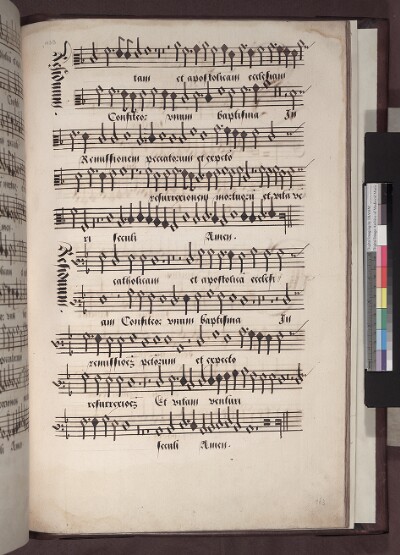 Residuum.
tam et apostolicam ecclesiam
Confiteor vnum baptisma In
Remissionem peccatorum et expecto
resurrexionem mortuorum et vita ve
ri seculi Amen.
Residuum.
catholicam et apostolica ecclesi
am Confiteor vnum baptisma In
remissioez pctorum et expecto
resurrexioez Et vitam venturi
seculi Amen.